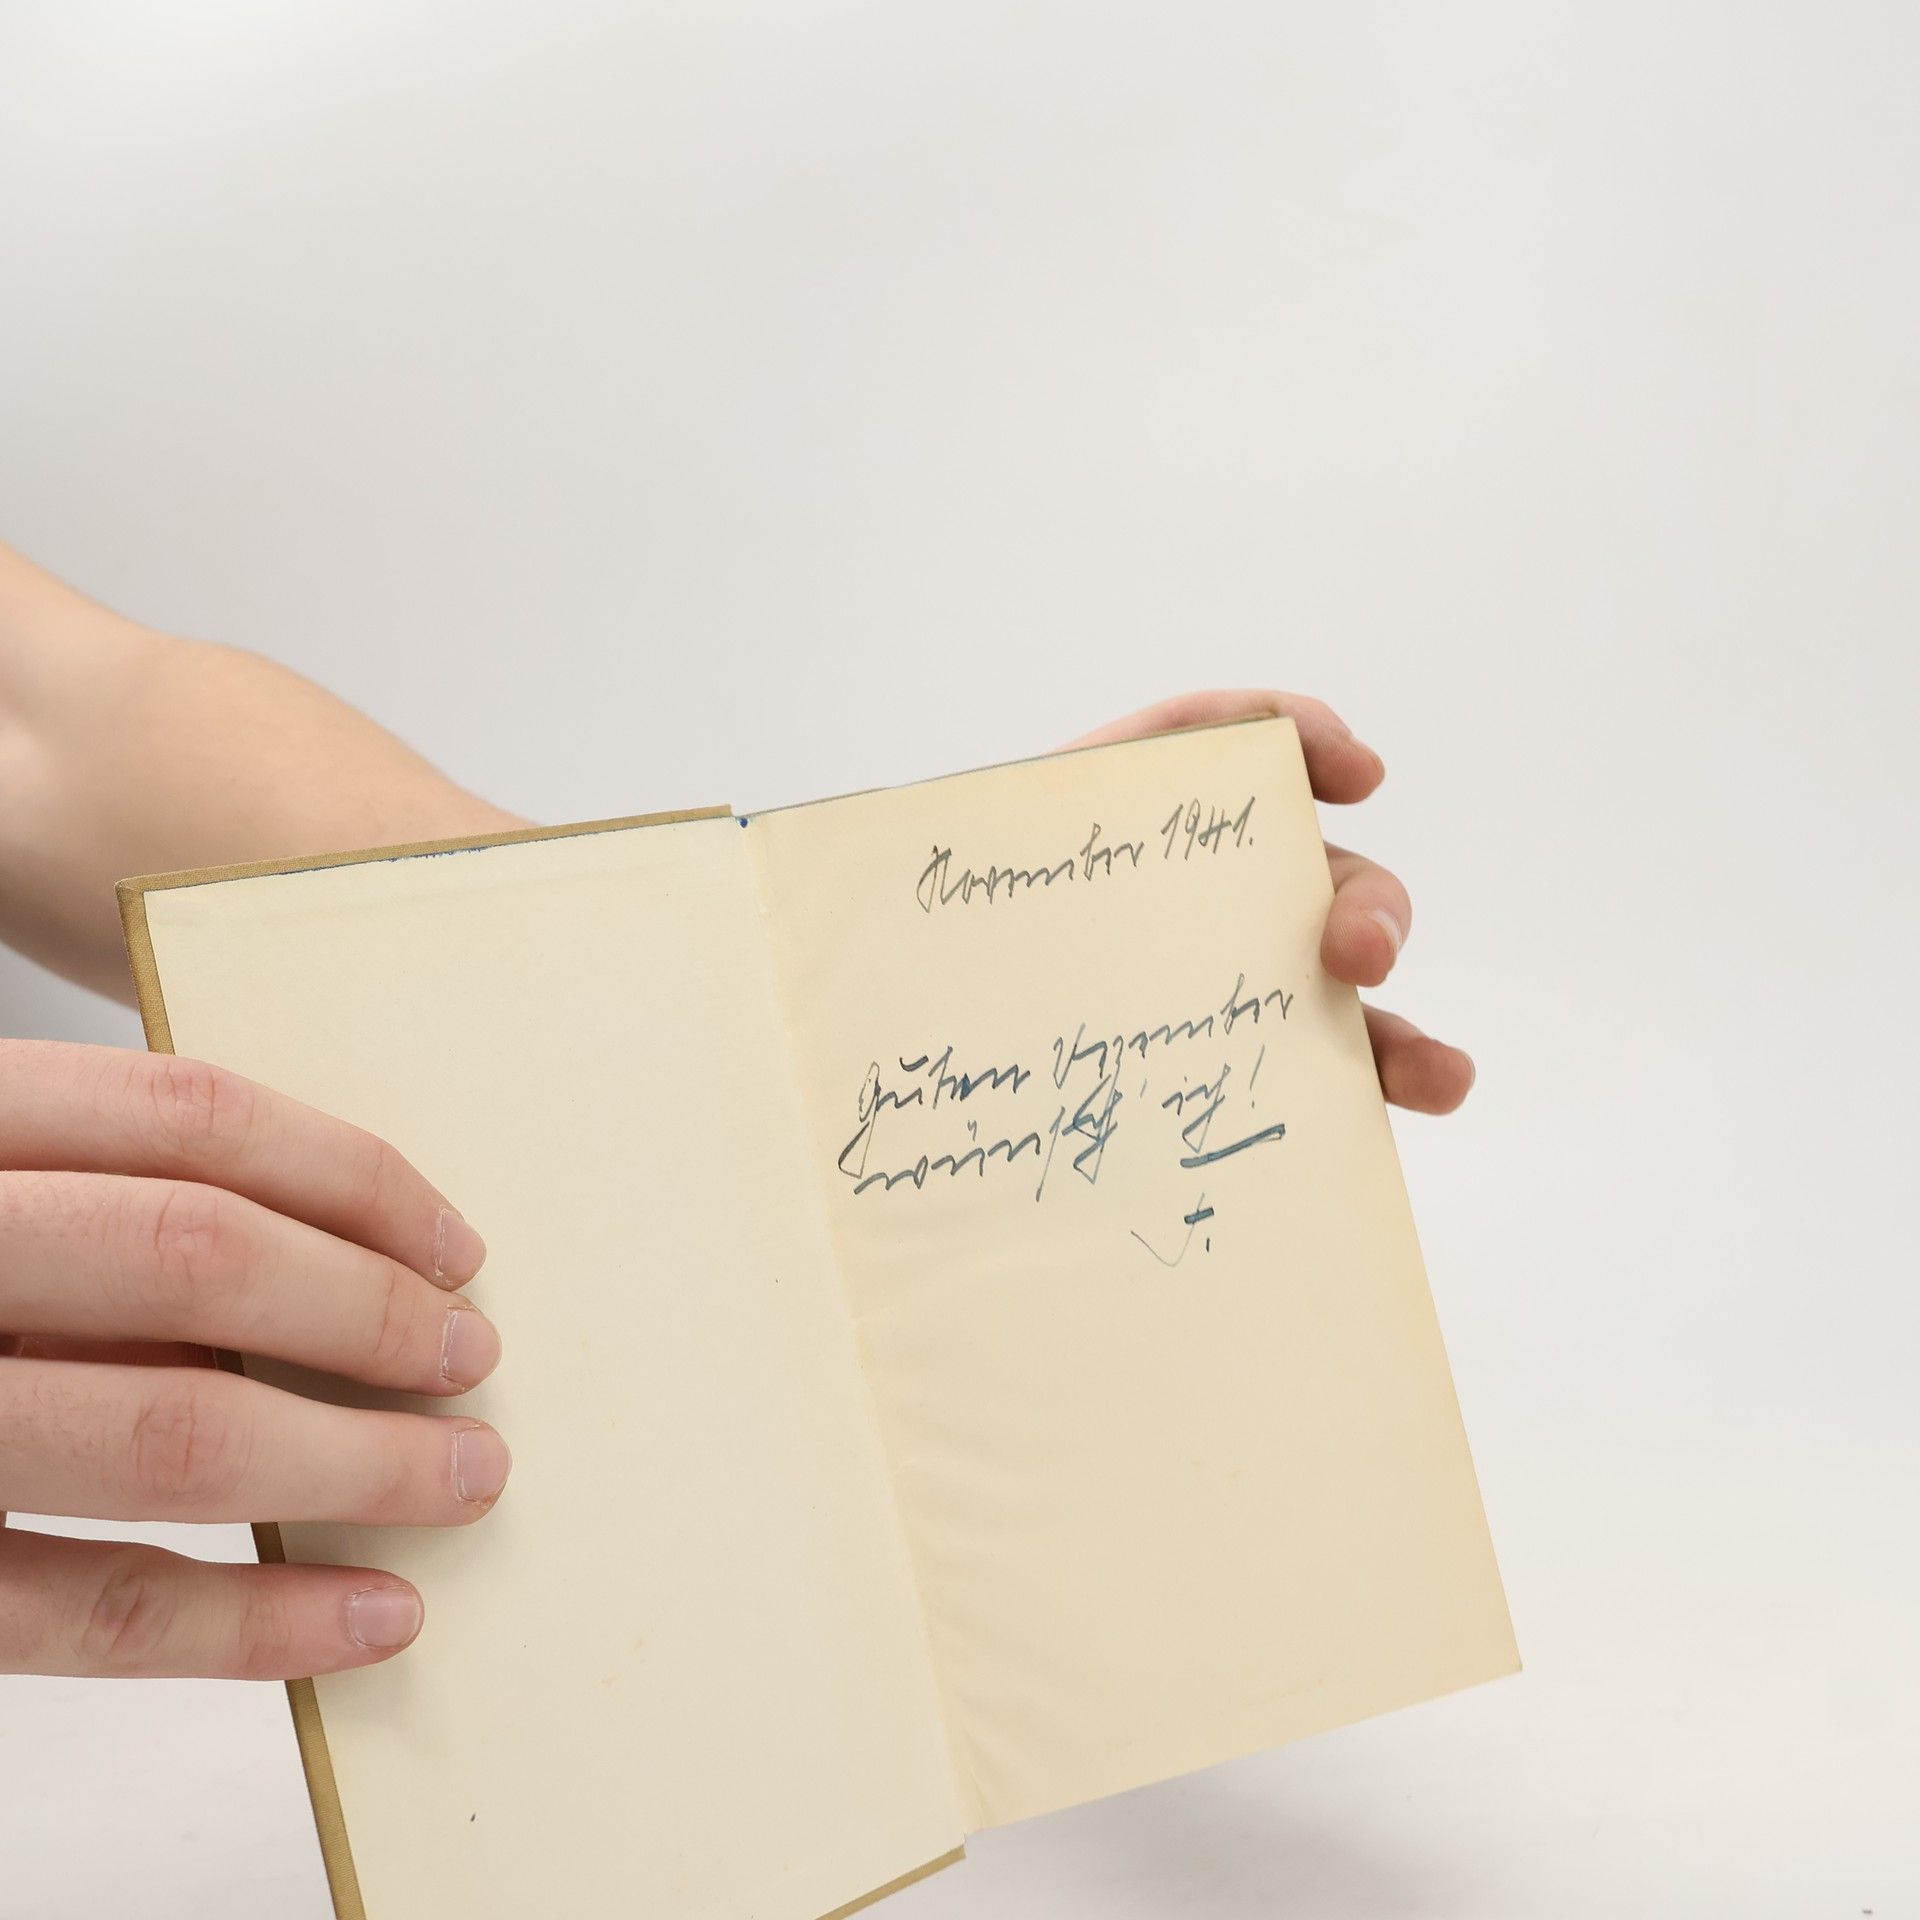 November 1941.
Guten
wünsch' ich!